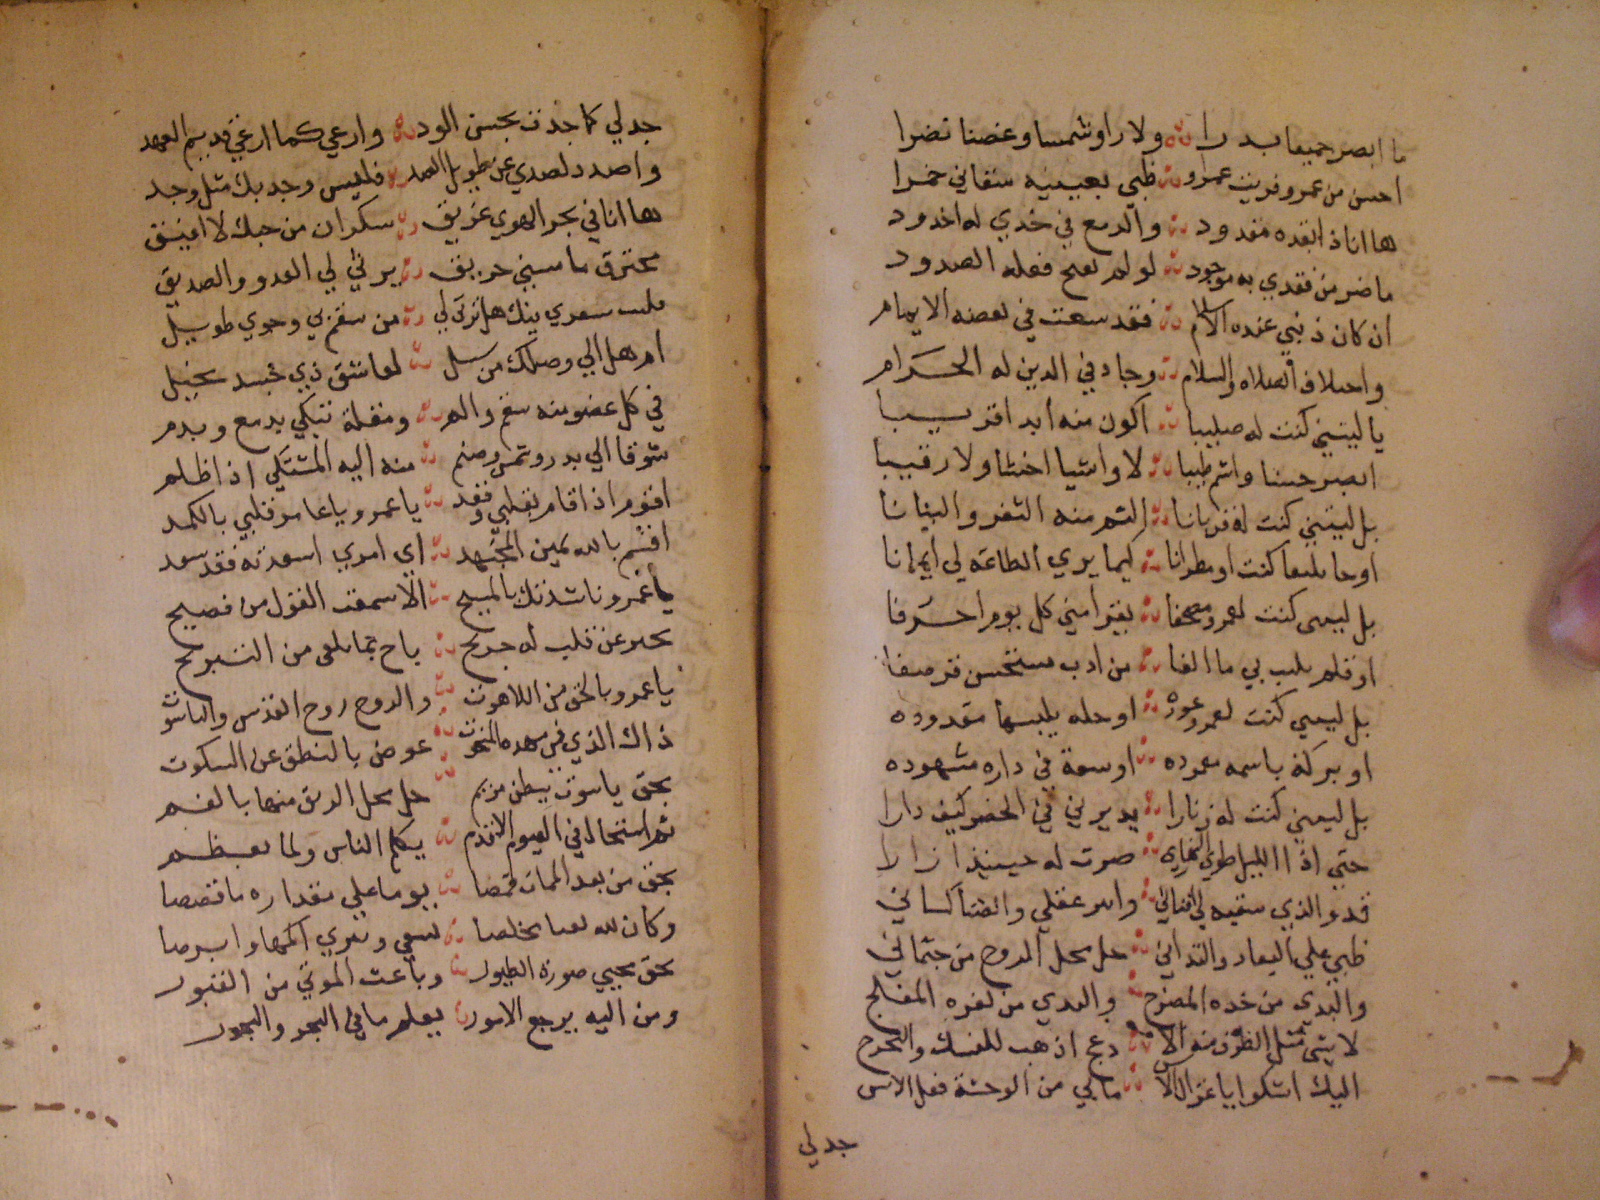 ما ابصر جميعا بدرا ولا راو شمسا وغصنا نضرا
احسن من عمرو فديت عمرا وظبي بعينيه سقاني خمرا
ها انا ذا بقده مقدود والدمع في خدي له اخدود
ما ضر من فقدي به موجود لو لم فعله الصدود
ان كان ذنبي عنده الاسلام فقد سعت في نقضه الايام
الصلاه والسلام وجاد في الدين له الحرام
يا ليتني كنت له صليبا اكون منه ابدا قريبا
ابصر حسنا واشم طيبا لا واشيا اخشا ولا رقيبا
بل ليتني كنت له قربانا الثم منه الثغر والبنانا
او جاثليقا كنت او مطرانا كيما يري الطاعه لي ايمانا
بل ليتني كنت لعمرو مصحفا يقرا مني كل يوم احرفا
او قلم يكتب بي ما الفا من ادب مستحسن قد صنفا
بل ليتني كنت لعمرو عوذه او حله يلبسها مقدوده
او بركة باسمه او بيعة في داره مشهوده
بل ليتني كنت له زنارا يديرني في الخصر كيف دارا
حتي اذا الليل طوي النهارا صرت له حينئذ ازارا
قد والذي يبقيه لي افناني وابتز عقلي والضنا كساني
ظبي علي البعاد والتداني حل محل الروح من جثماني
من خده المضرج من ثغره المفلج
لا شي مثل الطرف منه اذهب للنسك والتحرج
اليك اشكوا يا غزال الانس ما بي من الوحشة فعل الانس
جدلي
جد لي كما جدت بحسن الود وارعي كما ارعي قديم العهد
واصدد لصدي عن طويل الصد فليس وجد بك مثل وجد
ها انا في بحر الهوي غريق سكران من حبك لا افيق
محترق ما مسني حريق يرثي لي العدو والصديق
فليت شعري فيك هل ترثي لي من سقم بي وجوي طويل
ام هل الي وصلك من سبيل لعاشق ذي جسد نحيل
في كل عضو منه سقم والم ومقلة تبكي بدمع وبدم
شوقا الي بدر وشمس وصنم منه اليه المشتكي اذا ظلم
اقول اذ قام بقلبي وقعد يا عمرو يا عامر قلبي بالكمد
اقسم بالله يمين المجتهد اي امري اسعدته فقد سعد
يا عمرو ناشدتك بالمسيح الا سمعت القول من فصيح
يخبر عن قلب له جريح باح بما يلقي من التبريح
يا عمرو بالحق من اللاهوت والروح روح القدس والناسوت
ذاك الذي في مهده المنحوت عوض بالنطق عن السكوت
بحق ناسوت ببطن مريم حل محل الريق منها بالفم
ثم استحال في القنوم الاقدم يكلم الناس ولما يفطم
بحق من بعد الممات قمصا يوما علي مقداره ما قصصا
وكان لله تقيا مخلصا يشفي ويبري اكمها وابرصا
بحق محيي صورة الطيور وباعث الموتي من القبور
ومن اليه يرجع الامور يعلم ما في البحر والبحور